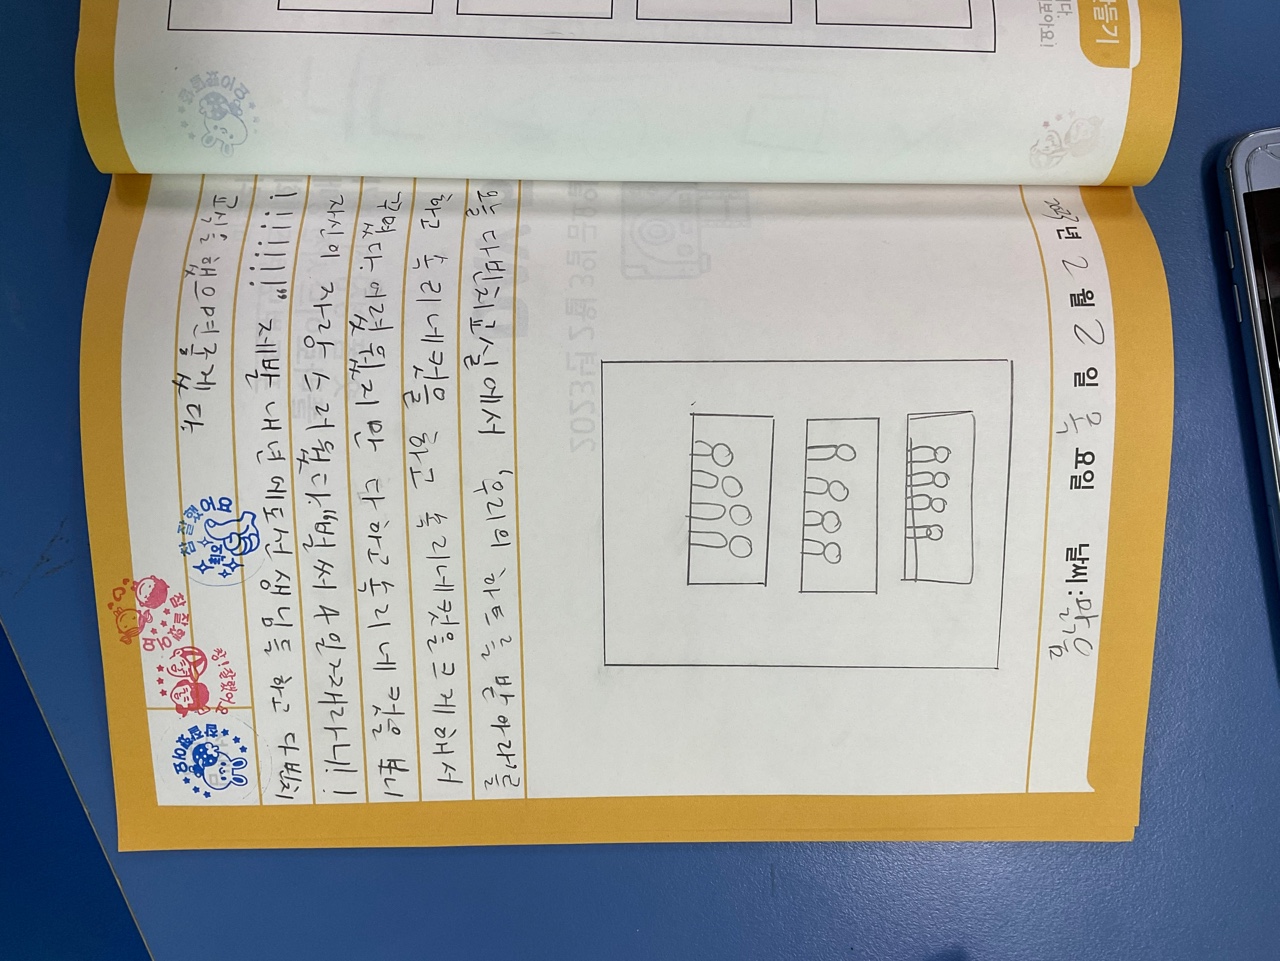 만들기
니다.
해보아요!
2023년 2월 2일 목요일 날씨:맑음
오늘 다빈치교실에서 '우리의 하트를 받아라'를
하고 속리네컷을 하고 속리네컷을크게해서
꾸몄다. 어렸웠지만 다하고속리네컷을 보니
자신이 자랑스러웠다."벌써 4일째라니!!
!!!!!!!" 제발 내년에도선생님들 하고 다빈치
교식을했으면좋겠다.
참 잘했어요
참!잘했어요
참잘했어요
2023년 2월 3일 금요일